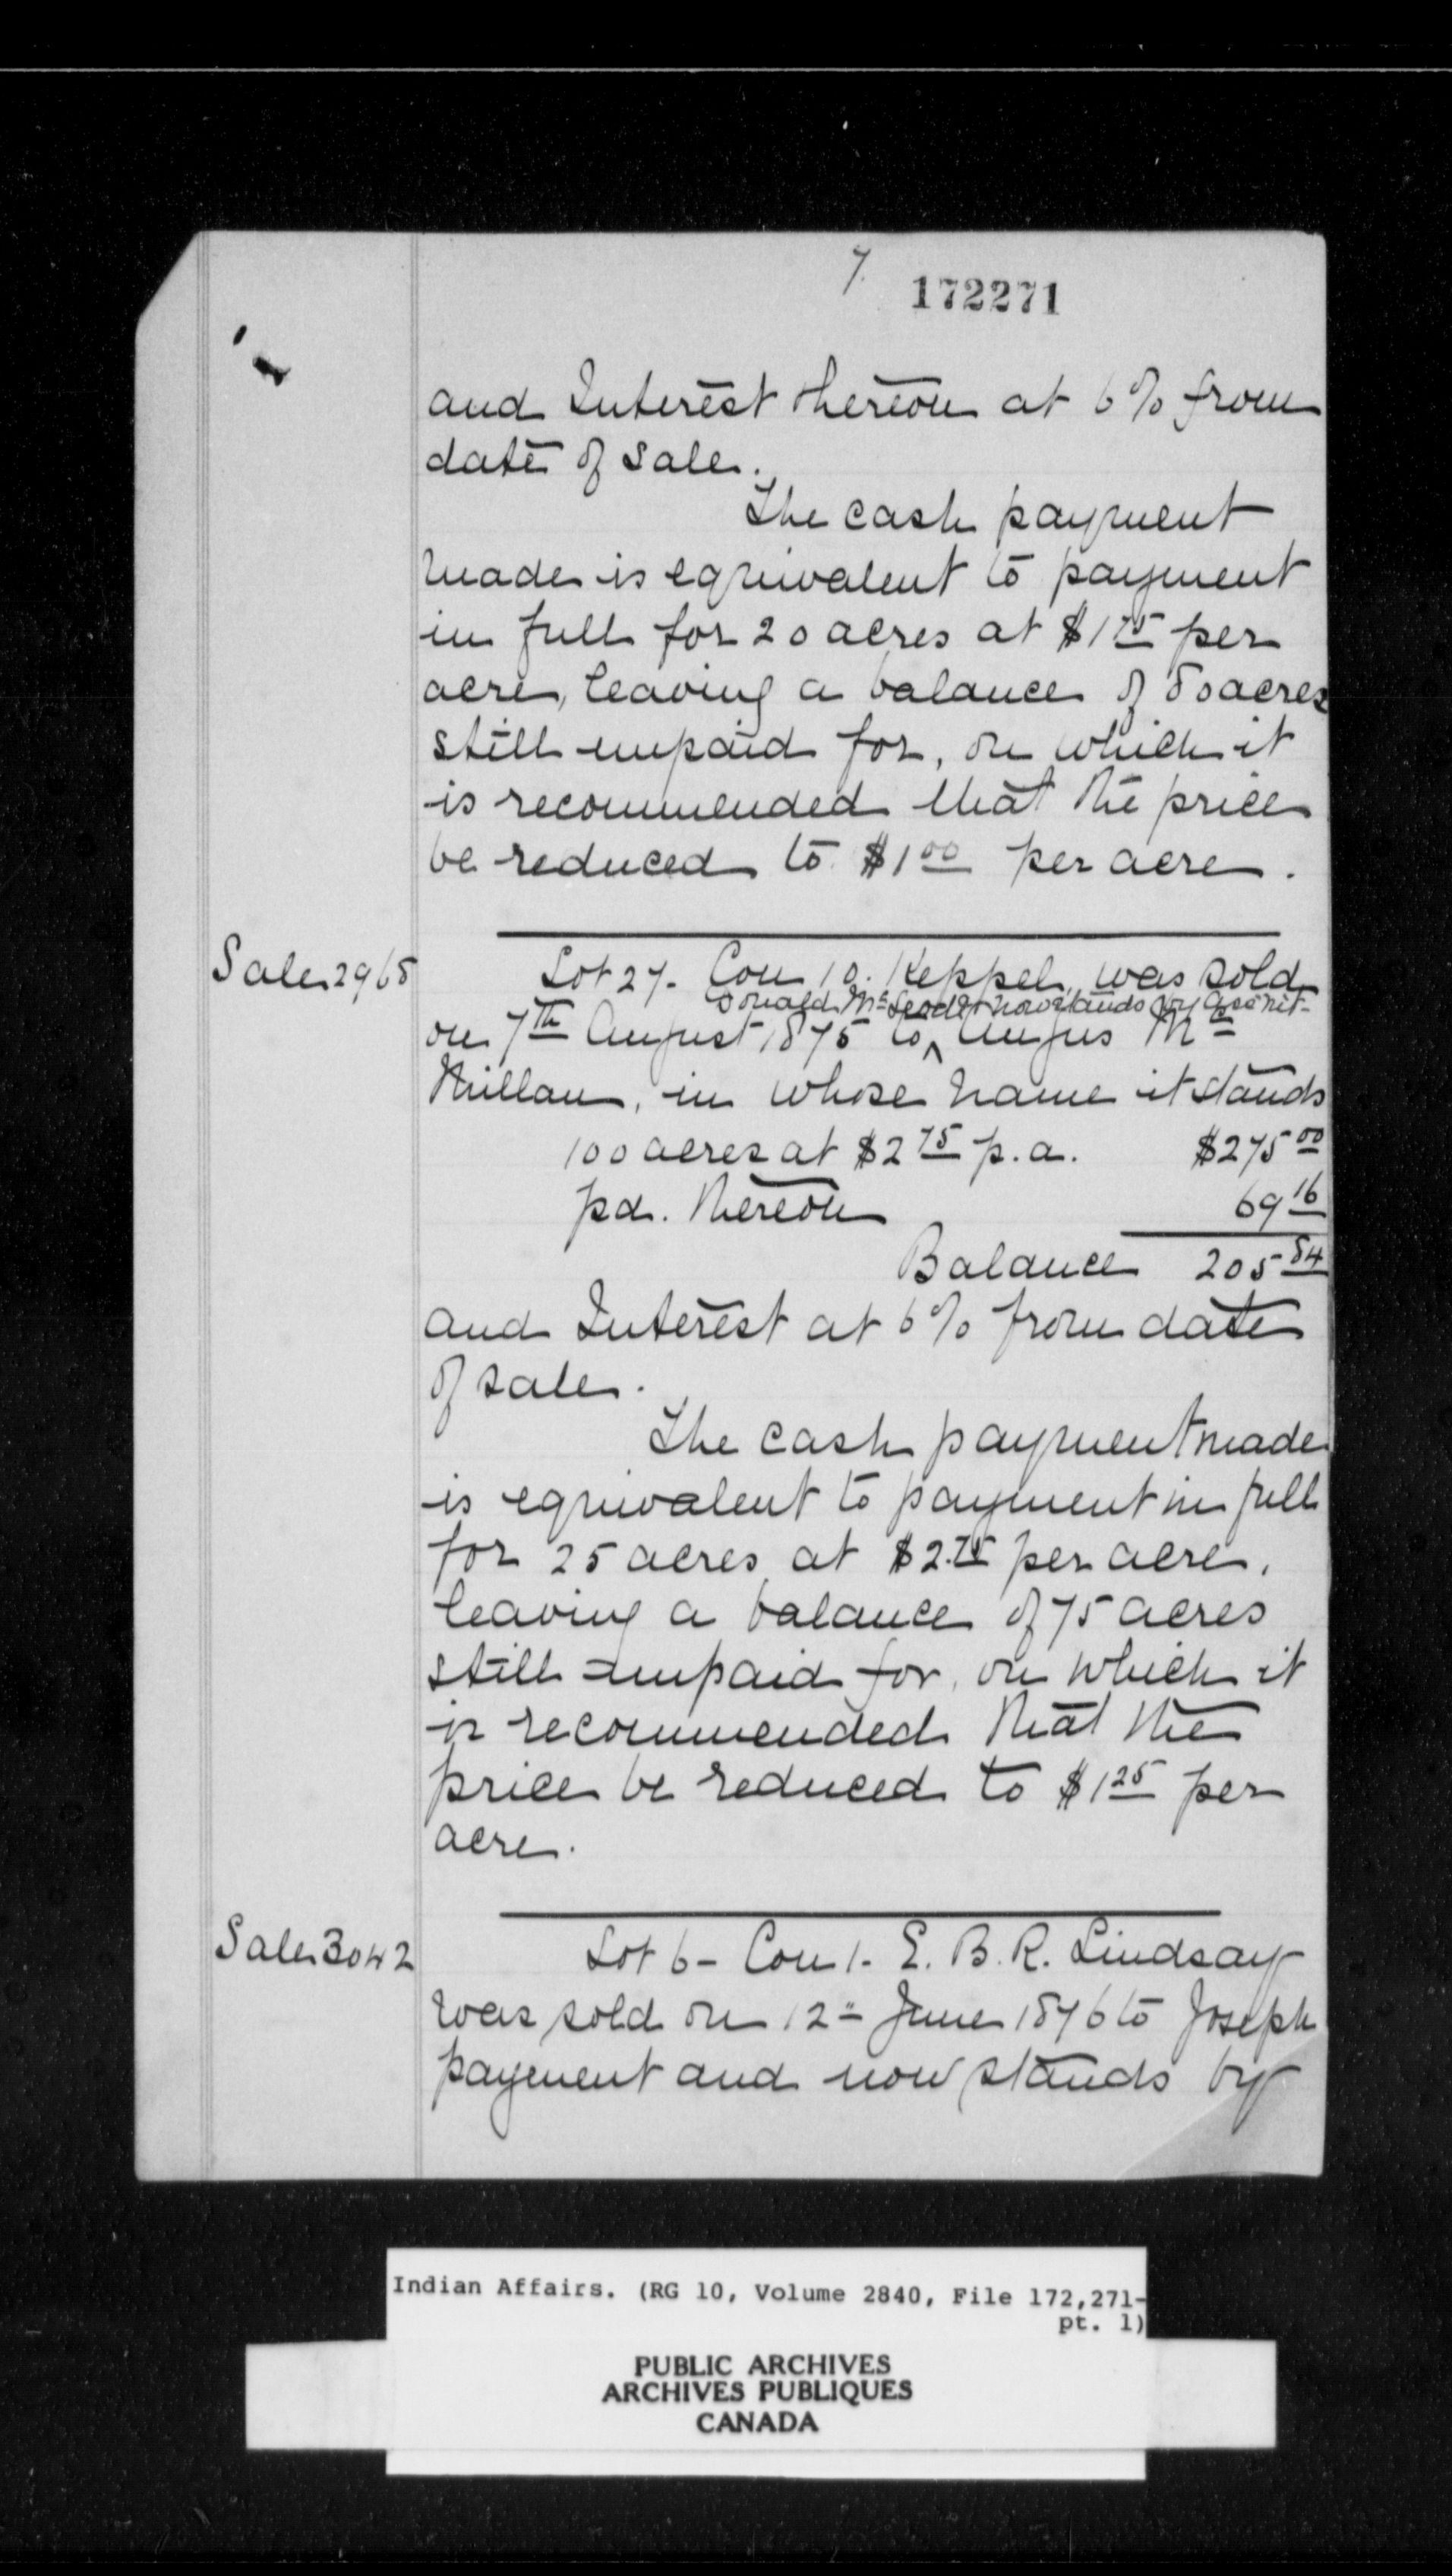 7.
172271
and Interest thereon at 6% from
date of sale.
The cash payment
made is equivalent to payment
in full for 20 acres at $1 75 per
acre, leaving a balance of 80 acres
still unpaid for, on which it
is recommended that the price
be reduced to $1 00 per acre.
Sale 2968
Lot 27. Con 10. Keppel, was sold
Donald McLeod & now stands by Ass'nt
on 7th August 1875 to ^ Angus Mc
Millan, in whose name it stands
100 acres at $2 75 p.a. $275 00
pd. thereon 69 16
Balance 205 84
and Interest at 6% from date
of sale.
The cash payment made
is equivalent to payment in full
for 25 acres at $2.75 per acre,
leaving a balance of 75 acres
still unpaid for, on which it
is recommended that the
price be reduced to $1 25 per
acre.
Sale 3042
Lot 6 - Con 1. E. B. R. Lindsay
was sold on 12" June 1876 to Joseph
payment and now stands by
Indian Affairs. (RG 10, Volume 2840, File 172,271-
pt. 1)
PUBLIC ARCHIVES
ARCHIVES PUBLIQUES
CANADA